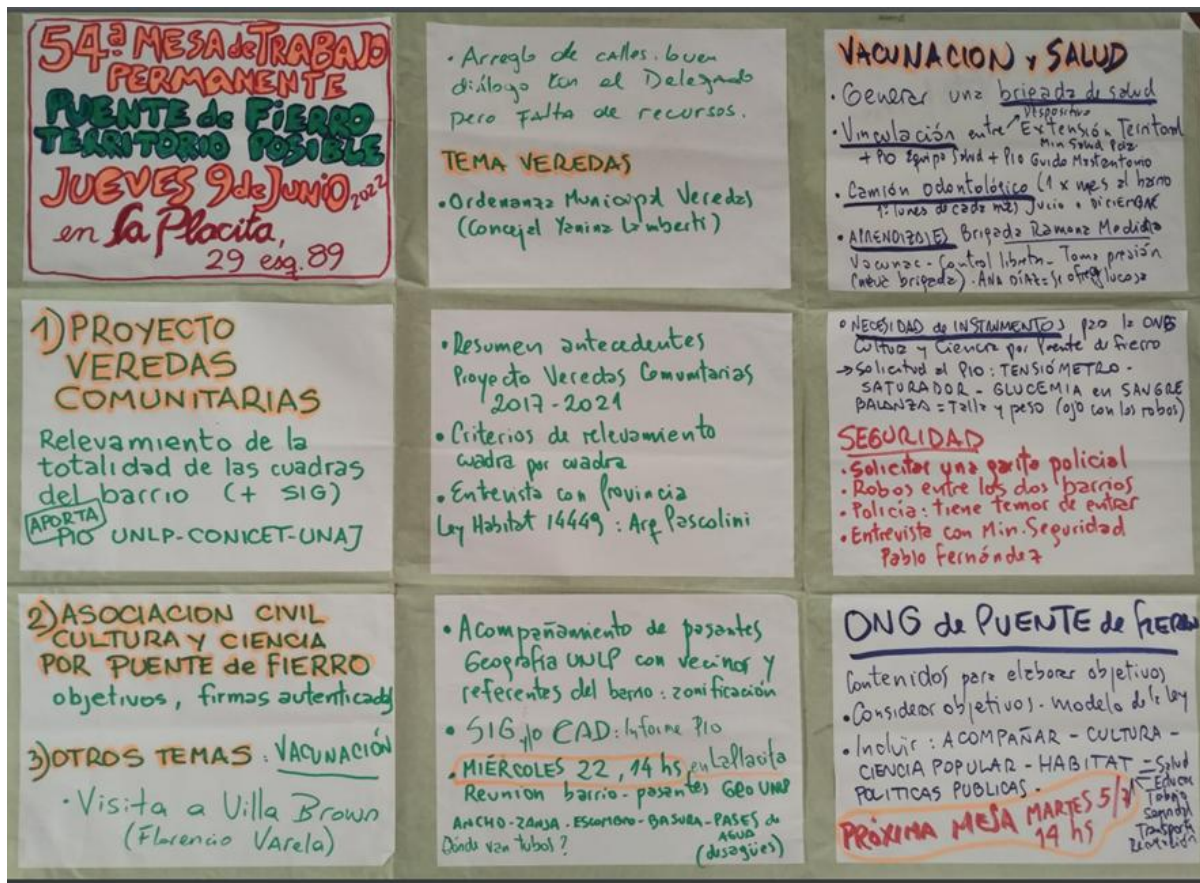 54ª MESA de TRABAJO
PERMANENTE
PUENTE de FIERRO
TERRITORIO POSIBLE
JUEVES 9 de JUNIO 2022
en la Placita,
29 esq. 89
1) PROYECTO
VEREDAS
COMUNITARIAS
Relevamiento de la
totalidad de las cuadras
del barrio (+ SIG)
APORTA
PIO UNLP-CONICET-UNAJ
2) ASOCIACION CIVIL
CULTURA Y CIENCIA
POR PUENTE de FIERRO
objetivos, firmas autenticadas
3) OTROS TEMAS: VACUNACIÓN
• Visita a Villa Brown
(Florencio Varela)
• Arreglo de calles. buen
diálogo con el Delegado
pero Falta de recursos.
TEMA VEREDAS
• Ordenanza Municipal Veredas
(Concejal Yanina Lamberti)
• Resumen antecedentes
Proyecto Veredas Comunitarias
2017-2021
• Criterios de relevamiento
cuadra por cuadra
• Entrevista con Provincia
Ley Habitat 14449: Arq Pascolini
• Acompañamiento de pasantes
Geografía UNLP con vecinos y
referentes del barrio: zonificación
• SIG y/o CAD: Informe PIO
• MIÉRCOLES 22, 14 hs, en La Placita
Reunion barrio-pasantes GEO UNLP
ANCHO-ZANJA-ESCOMBRO-BASURA-PASES de
AGUA
Dónde van tubos? (desagües)
VACUNACION y SALUD
• Generar una brigada de salud
Dispositivo
• Vinculación entre Extensión Territorial
Min Salud
+ PIO Equipo Salud + PIO Guido Mastantonio
• Camión odontológico (1 x mes al barrio
1º lunes de cada mes) Julio a DICIEMBRE
• APRENDIZAJES Brigada Ramona Medina
Vacunac-Control libreta-Toma presión
(nueva brigada). ANA DÍAZ= se ofrece glucosa
• NECESIDAD de INSTRUMENTOS para la ONG
Cultura y Ciencia por Puente de Fierro
→ Solicitud al PIO: TENSIÓMETRO-
SATURADOR-GLUCEMIA en SANGRE
BALANZA=Talla y peso (ojo con los robos)
SEGURIDAD
• Solicitar una garita policial
• Robos entre los dos barrios
• Policía: tiene temor de entrar
• Entrevista con Min. Seguridad
Pablo Fernández
ONG de PUENTE de FIERRO
Contenidos para elaborar objetivos
• Considerar objetivos-modelo de la ley
• Incluir: ACOMPAÑAR-CULTURA-
CIENCIA POPULAR-HABITAT-Salud
POLITICAS PUBLICAS- Educac
Trabajo
Seguridad
Transporte
Recreación
PRÓXIMA MESA MARTES 5/7
14 hs